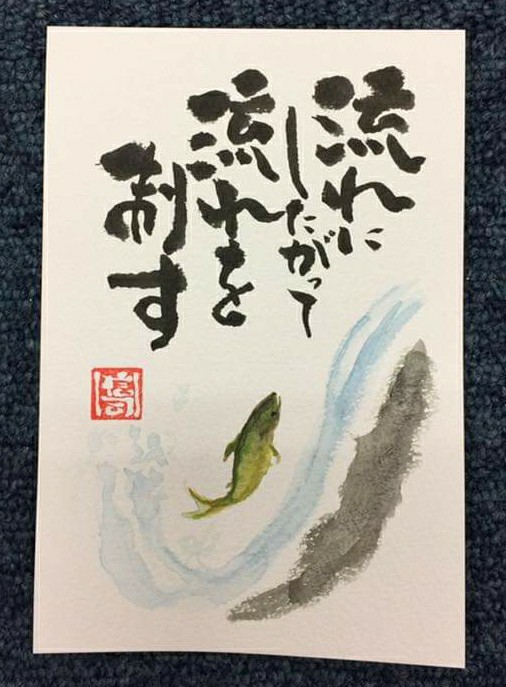 流れに
したがって
流れを
制す